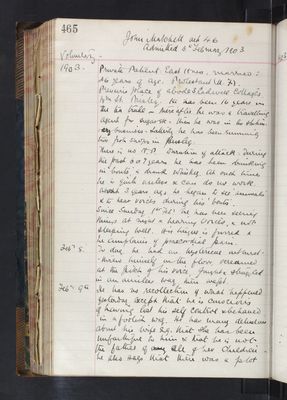 465
John Matchett aet 46
Admitted 5th February 1903
Voluntary -
1903 - Private Patient. East House. married:
46 years of age. Protestant (U.F.)
Previous place of abode 3 Cadzow Cottages
St. Paisley. He has been 16 years in
the tea trade - before he was a travelling
agent for Then he was in the
business - lately he has been running
two fish shops in Paisley.
There is no H.P. Duration of attack. During
the past 6 or 7 years he has been drinking
in bouts & drank whisky. At such times
he is quite useless & can do no work.
About 3 years ago he began to see
& to hear voices during his bouts.
Since Sunday 1st Feb. he has been seeing
things at night & hearing voices & not
sleeping well. His tongue is furred &
he complains of precordial pain.
Feb. 8. To day he had an hysterical outburst.
threw himself on the floor screamed
at the pitch of his voice, fought & struggled
in an way.
Feb. 9th He has no recollection of what happened
yesterday except that he is conscious
of having lost his self control & behaved
in a foolish way. He has many delusions
about his wife e.g. that she has been
unfaithful to him & that he is not
the father of any of her children.
he also says that there was a plot